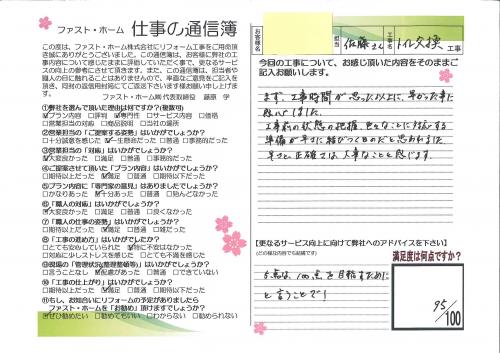 ファスト・ホーム 仕事の通信簿
この度は、ファスト・ホーム株式会社にリフォーム工事をご用命頂き誠にありがとうございました。この通信簿は、お客様に弊社の工事内容について感じたままに評価していただく事で、更なるサービスの向上の参考にさせて頂きます。また、この通信簿は、担当者や職人の目に触れることはありませんので、率直なご意見をご記入頂き、同封の返信用封筒にてご返送下さいます様お願い申し上げます。
ファスト・ホーム㈱ 代表取締役 藤原 学
①弊社を選んで頂いた理由は何ですか?(複数可)
☑プラン内容 □評判 ☑専門性 □サービス内容 □価格
□営業担当の対応 □商品説明 □当社の場所
②営業担当の「ご提案する姿勢」はいかがでしょうか?
□十分誠意を感じた ☑一生懸命だった □普通 □事務的だった
③営業担当の「対応」はいかがでしょうか?
☑大変良かった □満足 □普通 □事務的だった
④ご提案させて頂いた「プラン内容」はいかがでしょうか?
□期待以上だった ☑満足 □普通 □期待以下だった
⑤プラン内容に「専門家の意見」はありましたでしょうか?
□かなりあった ☑十分あった □普通 □殆んどなかった
⑥「職人の対応」はいかがでしょうか?
☑大変良かった □満足 □普通 □良くなかった
⑦「職人の仕事の姿勢」はいかがでしょうか?
□期待以上だった ☑満足 □普通 □雑だった
⑧「工事の進め方」はいかがでしょうか?
□とても安心していられた ☑特に不安はなかった
□対応に少しストレスを感じた □とても不満を感じた
⑨現場の「管理状況(整理整頓等)」はいかがでしょうか?
□言うことなし ☑配慮があった □普通 □できていない
⑩「工事の仕上がり」はいかがでしょうか?
□期待以上だった ☑満足 □普通 □期待以下だった
⑪もし、お知合いにリフォームの予定がありましたらファスト・ホームを「お勧め」頂けますでしょうか?
☑ぜひ勧めたい □勧めてもいい □わからない □勧められない
お客様名
担当 佐藤さん
工事名 トイレ交換 工事
今回の工事について、お感じ頂いた内容をそのままご記入お願いします。
まず、工事時間が思った以上に、早かった事に
感心しました。
工事前の状態の把握、色々なことに対応する
準備が早さに結びつくものだと思われました
早さと正確さは、大事なことと感じます。
【更なるサービス向上に向けて弊社へのアドバイスを下さい】
(どの様な内容でも結構です)
5点は、100点を目指すために
と言うことで!
満足度は何点ですか?
95/100